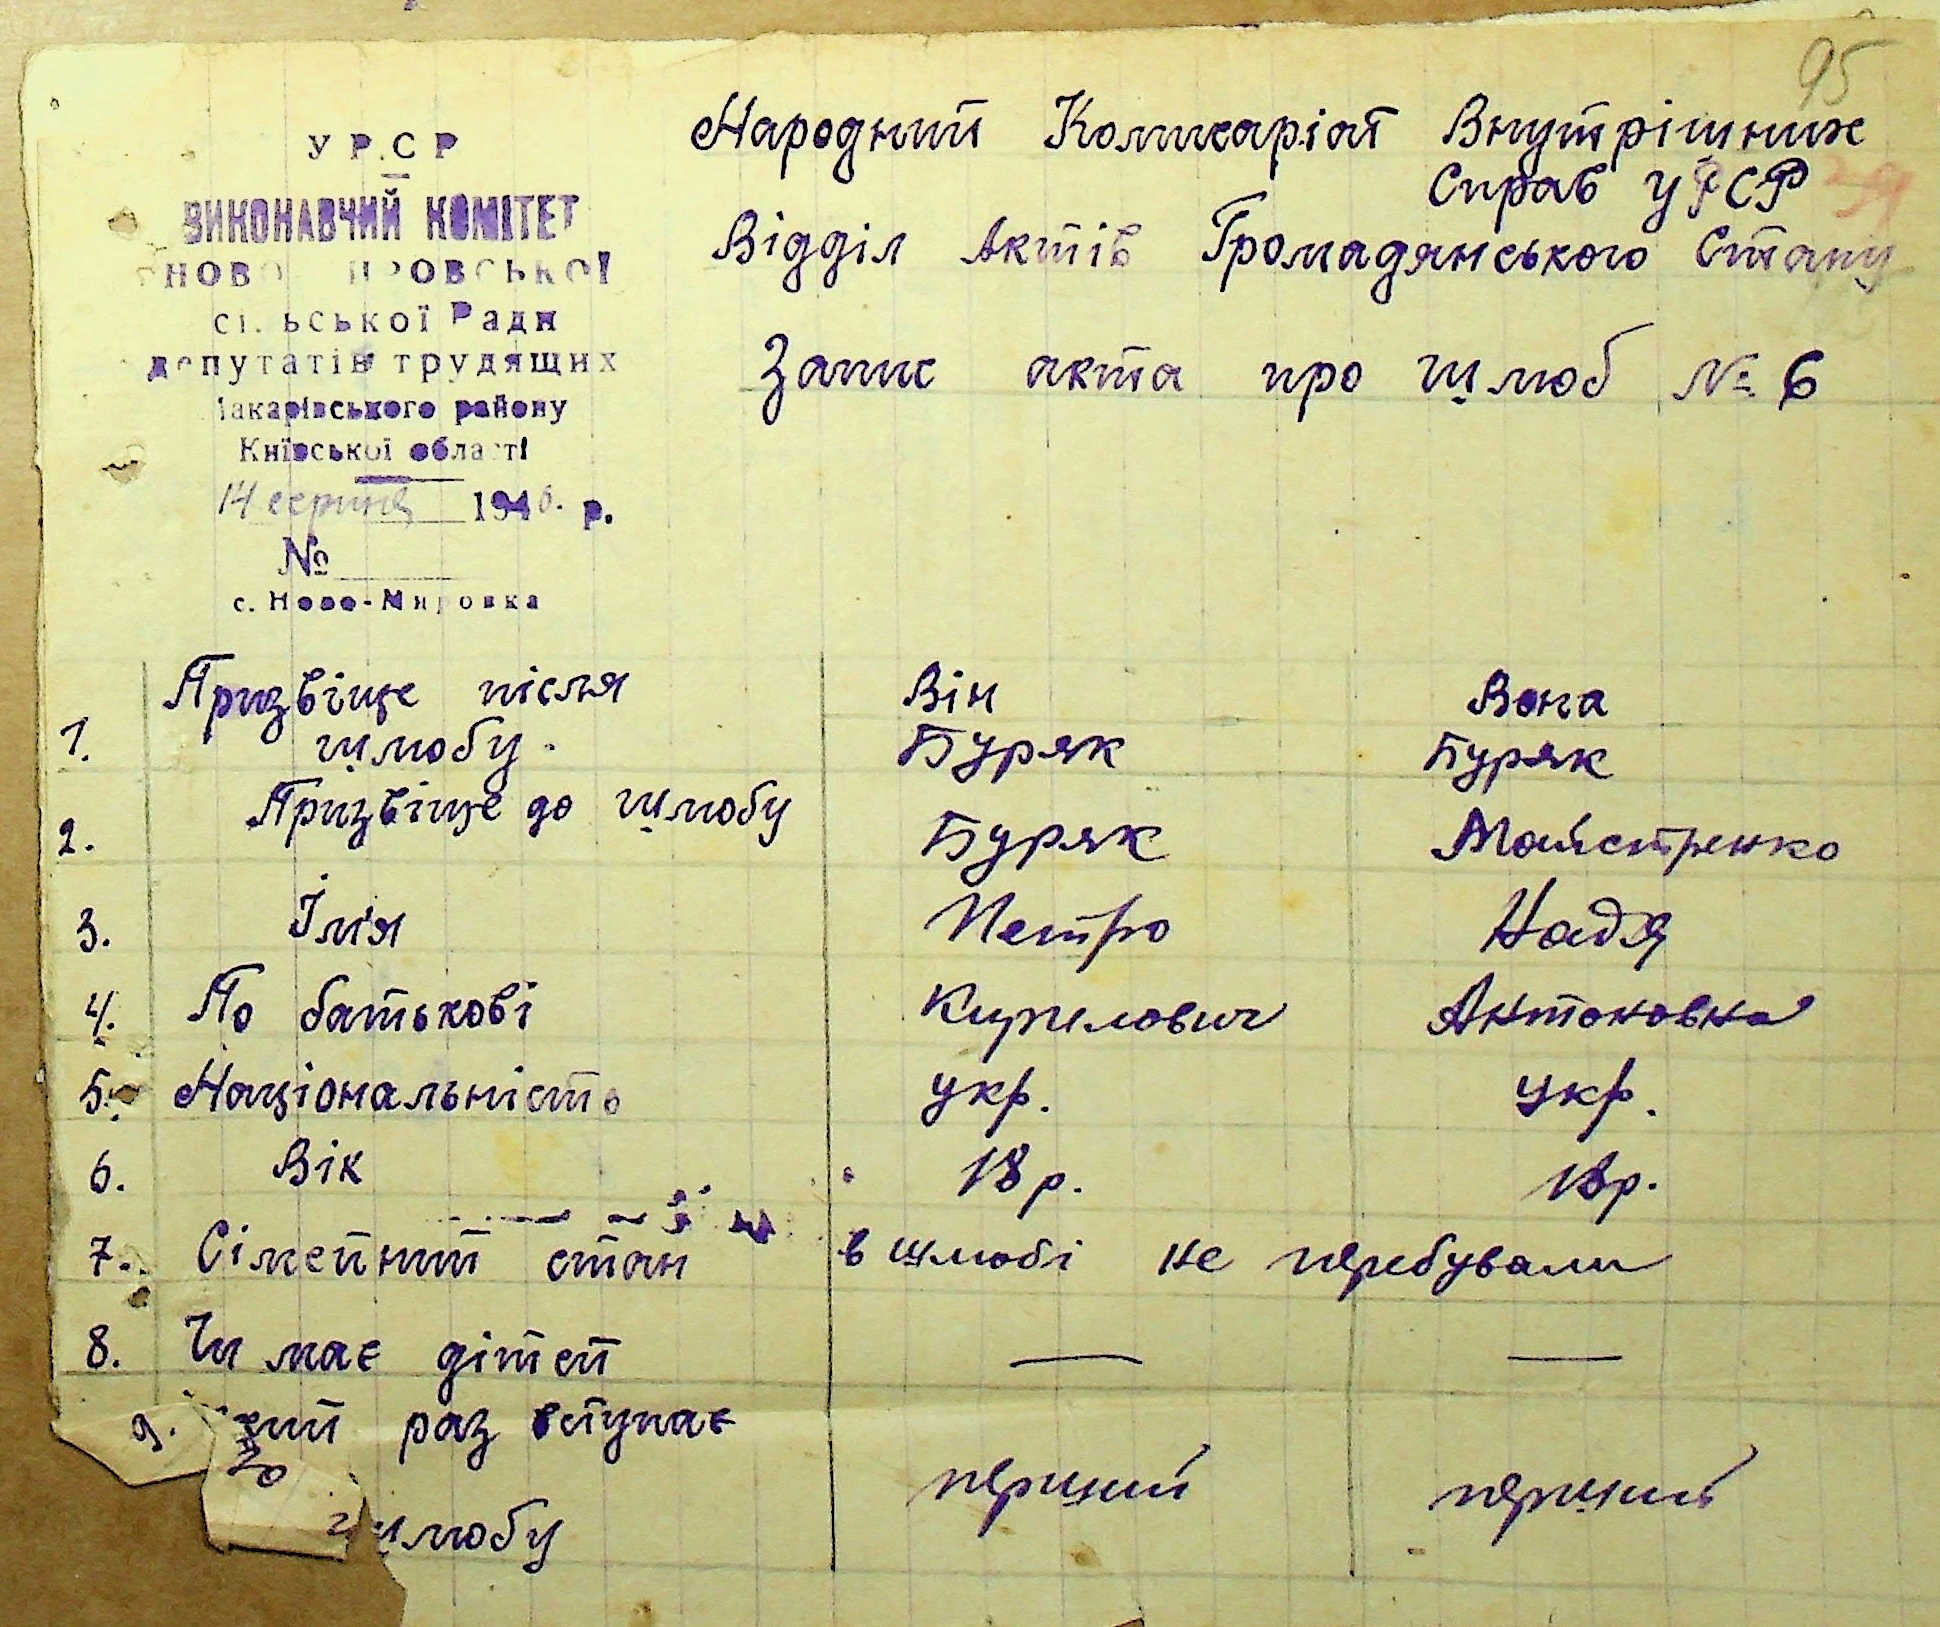 95
УРСР
ВИКОНАВЧИЙ КОМІТЕТ
сільської Ради
депутатів трудящих
Макарівського району
Київської області
14 серпня 1946. р.
№
с. Ново-Мировка
Народний Комисаріат Внутрішних
Справ УРСР
Відділ Актів Громадянського Стану
Запис акта про шлюб № 6
Призвіще після Він Вона
1. шлюбу. Буряк Буряк
2. Призвіще до шлюбу Буряк Майстренко
3. Їм'я Петро Надя
4. По батькові Кирилович Антоновна
5. Національність укр. укр.
6. Вік 18 р. 18 р.
7. Сімейний стан в шлюбі не перебували
8. Чи має дітей — —
9. раз вступає
перший перший
шлюбу